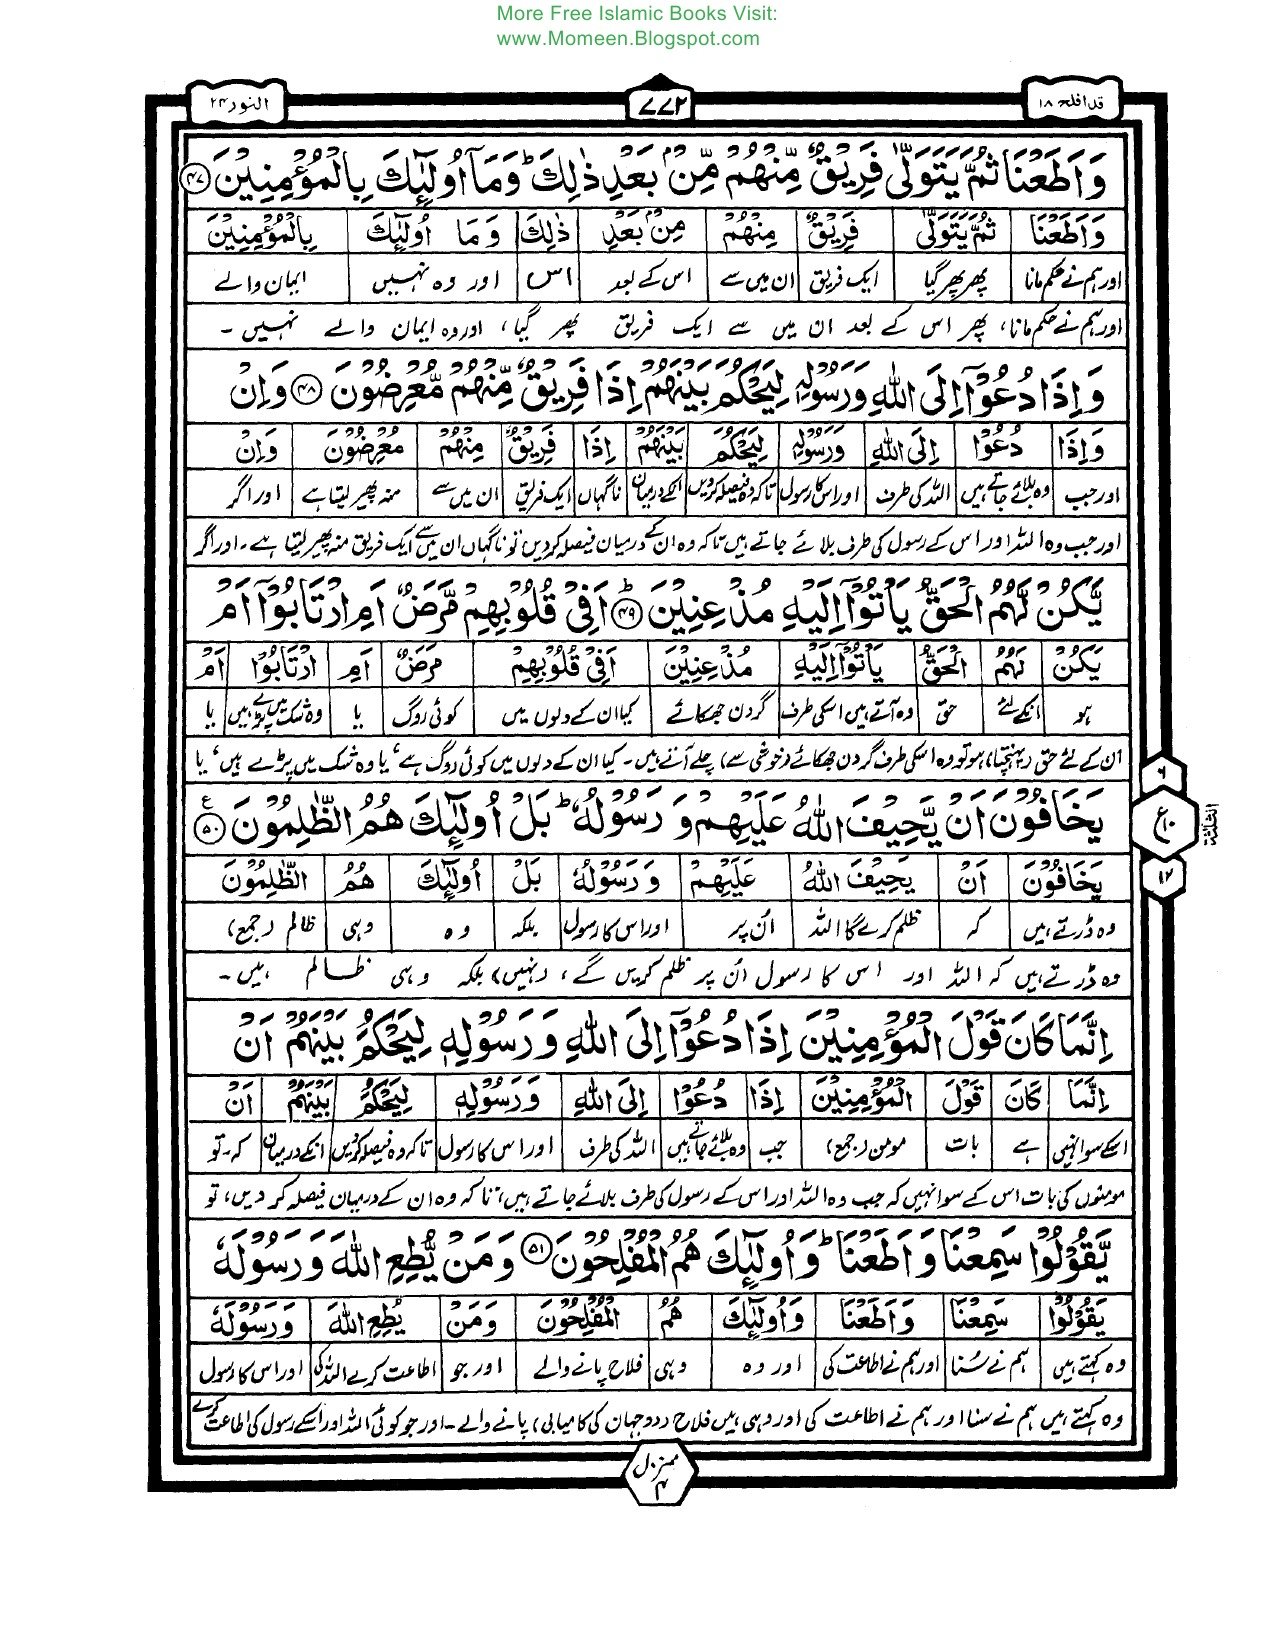 More Free Islamic Books Visit:
www.Momeen.Blogspot.com
قد افلح ۱۸
۷۷۲
النور ۲۴
وَاَطَعْنَا ثُمَّ يَتَوَلّٰى فَرِيْقٌ مِّنْهُمْ مِّنْۢ بَعْدِ ذٰلِكَ ؕ وَمَاۤ اُولٰٓئِكَ بِالْمُؤْمِنِيْنَ ﴿۴۷﴾
وَاَطَعْنَا ثُمَّ يَتَوَلّٰى فَرِيْقٌ مِنْهُمْ مِنْۢ بَعْدِ ذٰلِكَ وَمَا اُولٰٓئِكَ بِالْمُؤْمِنِيْنَ
اور ہم نے حکم مانا پھر پھر گیا ایک فریق ان میں سے اس کے بعد اس اور وہ نہیں ایمان والے
اور ہم نے حکم مانا، پھر اس کے بعد ان میں سے ایک فریق پھر گیا، اور وہ ایمان والے نہیں۔
وَاِذَا دُعُوْۤا اِلَى اللّٰهِ وَرَسُوْلِهٖ لِيَحْكُمَ بَيْنَهُمْ اِذَا فَرِيْقٌ مِّنْهُمْ مُّعْرِضُوْنَ ﴿۴۸﴾ وَاِنْ
وَاِذَا دُعُوْۤا اِلَى اللّٰهِ وَرَسُوْلِهٖ لِيَحْكُمَ بَيْنَهُمْ اِذَا فَرِيْقٌ مِنْهُمْ مُعْرِضُوْنَ وَاِنْ
اور جب وہ بلائے جاتے ہیں اللہ کی طرف اور اس کا رسول تاکہ وہ فیصلہ کردیں انکے درمیان ناگہاں ایک فریق ان میں سے منہ پھیر لیتا ہے اور اگر
اور جب وہ اللہ اور اس کے رسول کی طرف بلائے جاتے ہیں تاکہ وہ ان کے درمیان فیصلہ کردیں تو ناگہاں ان میں سے ایک فریق منہ پھیر لیتا ہے۔ اور اگر
يَّكُنْ لَّهُمُ الْحَقُّ يَاْتُوْۤا اِلَيْهِ مُذْعِنِيْنَ ؕ ﴿۴۹﴾ اَفِىْ قُلُوْبِهِمْ مَّرَضٌ اَمِ ارْتَابُوْۤا اَمْ
يَكُنْ لَهُمُ الْحَقُّ يَاْتُوْۤا اِلَيْهِ مُذْعِنِيْنَ اَفِىْ قُلُوْبِهِمْ مَرَضٌ اَمِ ارْتَابُوْۤا اَمْ
ہو انکے لئے حق وہ آتے ہیں اسکی طرف گردن جھکائے کیا ان کے دلوں میں کوئی روگ یا وہ شک میں پڑے ہیں یا
ان کے لئے حق (پہنچتا) ہو تو وہ اسکی طرف گردن جھکائے (خوشی سے) چلے آتے ہیں۔ کیا ان کے دلوں میں کوئی روگ ہے، یا وہ شک میں پڑے ہیں، یا
يَخَافُوْنَ اَنْ يَّحِيْفَ اللّٰهُ عَلَيْهِمْ وَرَسُوْلُهٗ ؕ بَلْ اُولٰٓئِكَ هُمُ الظّٰلِمُوْنَ ﴿۵۰﴾ ع
يَخَافُوْنَ اَنْ يَحِيْفَ اللّٰهُ عَلَيْهِمْ وَرَسُوْلُهٗ بَلْ اُولٰٓئِكَ هُمُ الظّٰلِمُوْنَ
وہ ڈرتے ہیں کہ ظلم کرے گا اللہ ان پر اور اس کا رسول بلکہ وہ وہی ظالم (جمع)
وہ ڈرتے ہیں کہ اللہ اور اس کا رسول ان پر ظلم کریں گے، (نہیں) بلکہ وہی ظالم ہیں۔
۶
ع ۱۰
۱۲
الثلثة
اِنَّمَا كَانَ قَوْلَ الْمُؤْمِنِيْنَ اِذَا دُعُوْۤا اِلَى اللّٰهِ وَرَسُوْلِهٖ لِيَحْكُمَ بَيْنَهُمْ اَنْ
اِنَّمَا كَانَ قَوْلَ الْمُؤْمِنِيْنَ اِذَا دُعُوْۤا اِلَى اللّٰهِ وَرَسُوْلِهٖ لِيَحْكُمَ بَيْنَهُمْ اَنْ
اسکے سوا نہیں ہے بات مومن (جمع) جب وہ بلائے جاتے ہیں اللہ کی طرف اور اس کا رسول تاکہ وہ فیصلہ کردیں انکے درمیان کہ۔ تو
مومنوں کی بات اس کے سوا نہیں کہ جب وہ اللہ اور اس کے رسول کی طرف بلائے جاتے ہیں، تاکہ وہ ان کے درمیان فیصلہ کر دیں، تو
يَّقُوْلُوْا سَمِعْنَا وَاَطَعْنَا ؕ وَاُولٰٓئِكَ هُمُ الْمُفْلِحُوْنَ ﴿۵۱﴾ وَمَنْ يُّطِعِ اللّٰهَ وَرَسُوْلَهٗ
يَقُوْلُوْا سَمِعْنَا وَاَطَعْنَا وَاُولٰٓئِكَ هُمُ الْمُفْلِحُوْنَ وَمَنْ يُطِعِ اللّٰهَ وَرَسُوْلَهٗ
وہ کہتے ہیں ہم نے سنا اور ہم نے اطاعت کی اور وہ وہی فلاح پانے والے اور جو اطاعت کرے اللہ کی اور اس کا رسول
وہ کہتے ہیں ہم نے سنا اور ہم نے اطاعت کی اور وہی ہیں فلاح (دو جہان کی کامیابی) پانے والے۔ اور جو کوئی اللہ اور اسکے رسول کی اطاعت کرے
منزل ۴